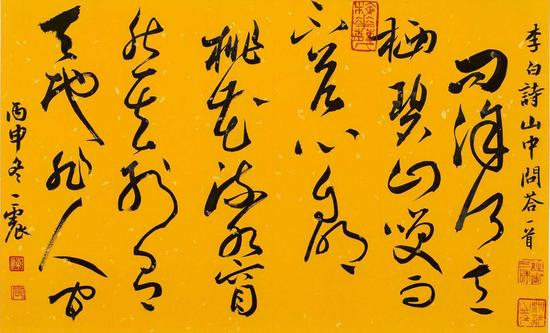 李白詩山中問荅一首
问余何意
栖碧山笑而
不荅心自闲
桃花流水窅
然去别有
天地非人间
丙申冬一震